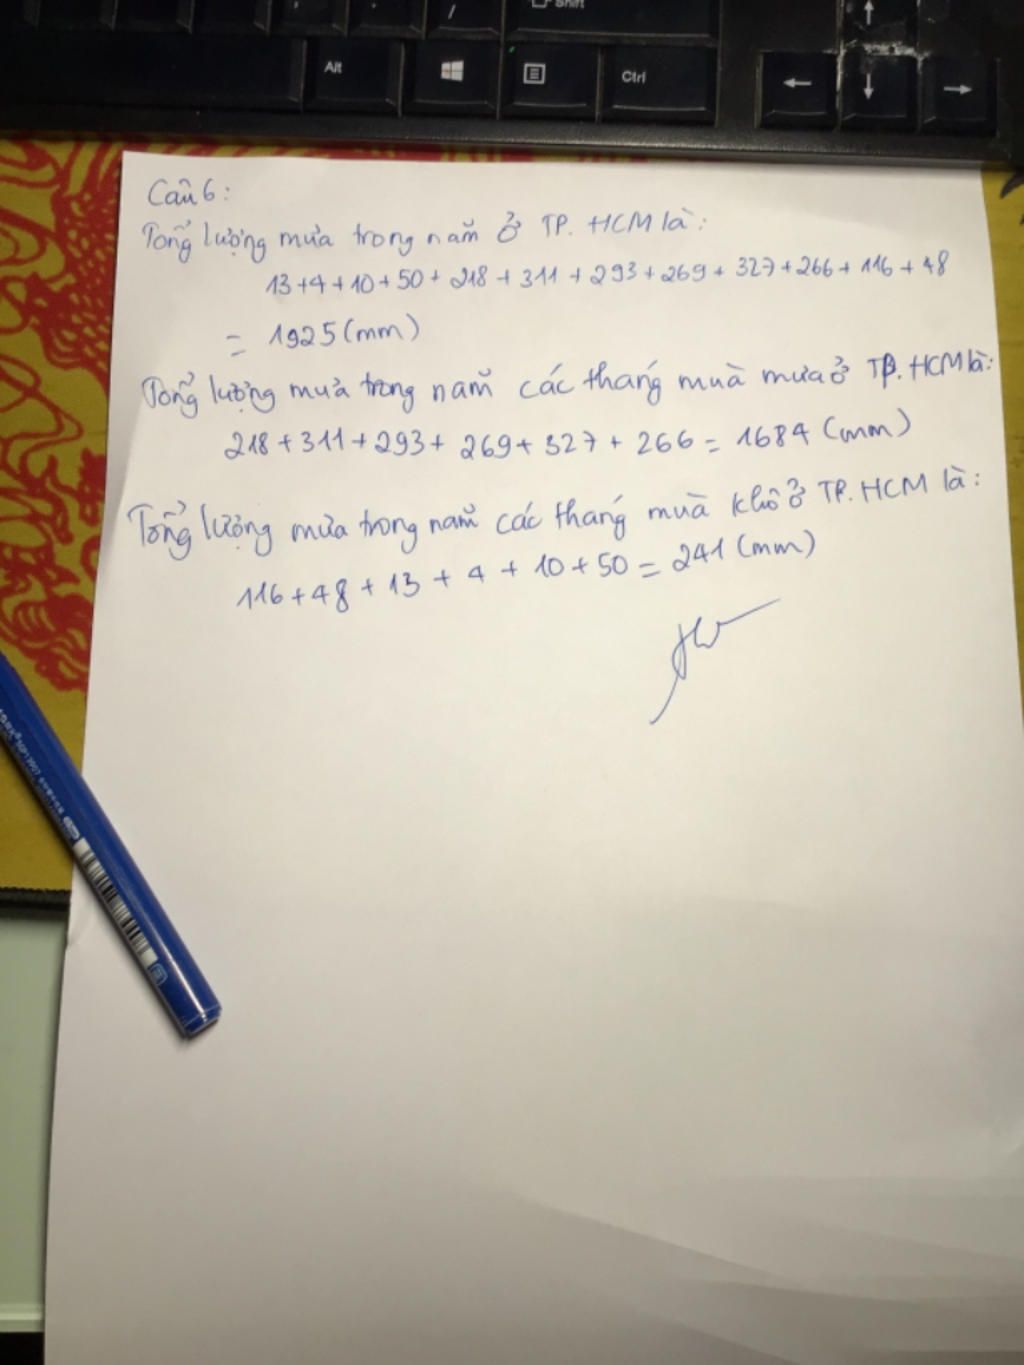 /
Shift
Alt
Ctrl
Câu 6:
Tổng lượng mưa trong năm ở TP. HCM là:
13+4+10+50+218+311+293+269+327+266+116+48
= 1925 (mm)
Tổng lượng mưa trong năm các tháng muà mưa ở TP. HCM là:
218+311+293+269+327+266=1684 (mm)
Tổng lượng mưa trong năm các tháng muà khô ở TP. HCM là:
116+48+13+4+10+50=241 (mm)